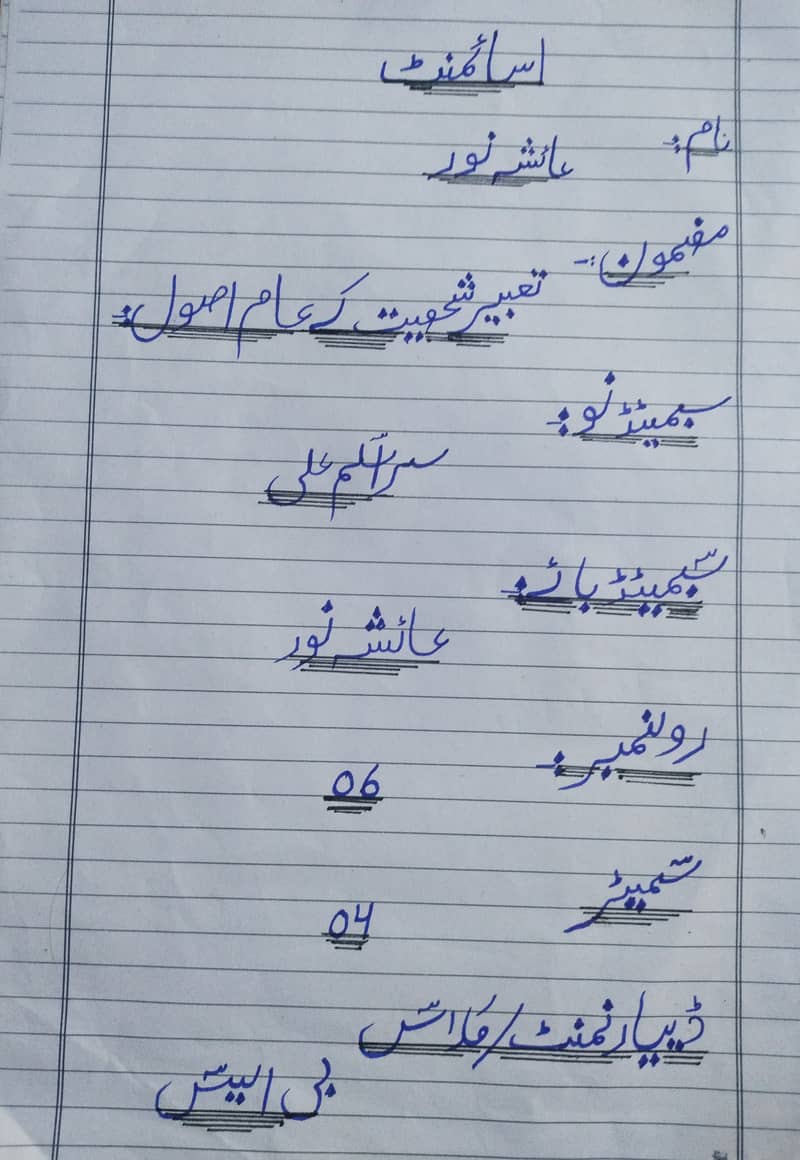 اسائمنٹ
نام:-
عائشہ نور
مضمون:-
تعبیر شخصیت کے عام اصول:-
سبمیٹڈ ٹو:-
سر اسلم علی
سبمیٹڈ بائے:-
عائشہ نور
رولنمبر:-
06
سمیٹر
04
ڈیپارنمنٹ/کلاس
بی ایس